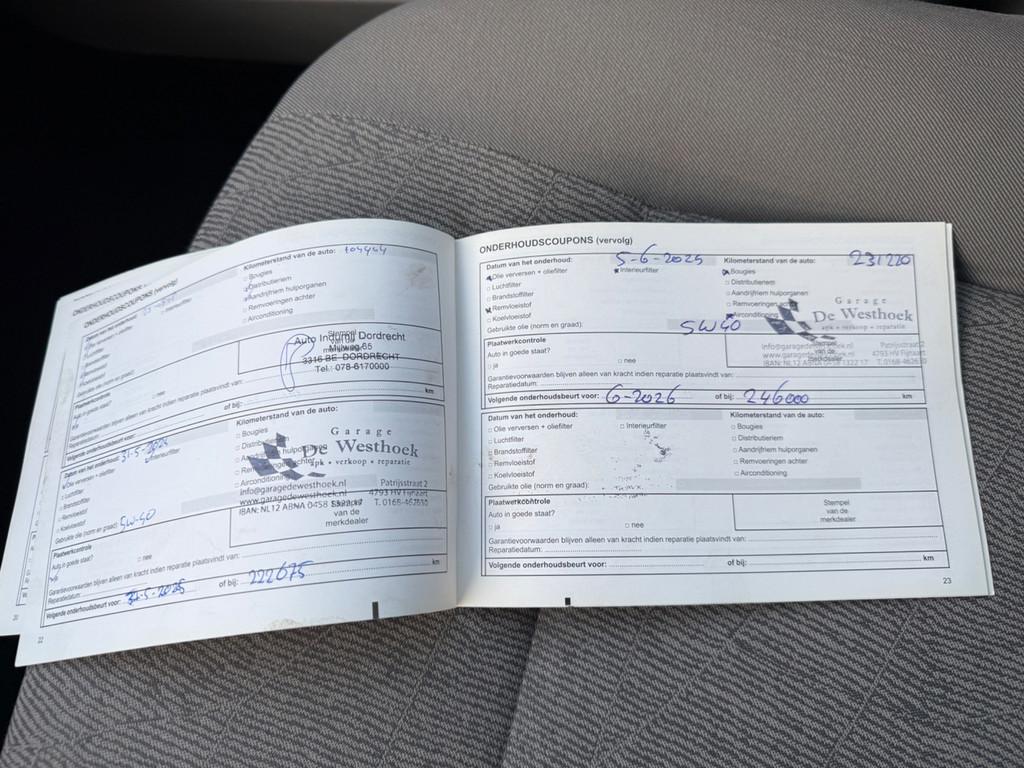 ONDERHOUDSCOUPONS (vervolg)
Kilometerstand van de auto:
Bougies
Distributieriem
Aandrijfriem hulporganen
Remvoeringen achter
Airconditioning
Stempel
Auto Indumij Dordrecht
Mijlweg 65
3316 BE DORDRECHT
Tel.: 078-6170000
Plaatwerkcontrole
Auto in goede staat?
nee
Garantievoorwaarden blijven alleen van kracht indien reparatie plaatsvindt van:
Reparatiedatum:
Volgende onderhoudsbeurt voor: of bij: km
Datum van het onderhoud: 31-5-2024
Kilometerstand van de auto:
Olie verversen + oliefilter
Interieurfilter
Bougies
Luchtfilter
Brandstoffilter
Remvloeistof
Koelvloeistof
Airconditioning
Gebruikte olie (norm en graad): 5W-40
Garage
De Westhoek
apk • verkoop • reparatie
info@garagedewesthoek.nl Patrijsstraat 2
www.garagedewesthoek.nl 4793 HV Fijnaart
IBAN: NL12 ABNA 0458 1322 17 T. 0168-462630
Stempel
van de
merkdealer
Plaatwerkcontrole
Auto in goede staat?
ja
nee
Garantievoorwaarden blijven alleen van kracht indien reparatie plaatsvindt van:
Reparatiedatum:
Volgende onderhoudsbeurt voor: 31-5-2025 of bij: 222675 km
22
ONDERHOUDSCOUPONS (vervolg)
Datum van het onderhoud: 5-6-2025 Kilometerstand van de auto: 231220
Olie verversen + oliefilter Interieurfilter Bougies
Luchtfilter Distributieriem
Brandstoffilter Aandrijfriem hulporganen
Remvloeistof Remvoeringen achter
Koelvloeistof Airconditioning
Gebruikte olie (norm en graad): 5W40
Garage
De Westhoek
apk • verkoop • reparatie
Plaatwerkcontrole
Auto in goede staat?
ja nee
Stempel
van de
merkdealer
info@garagedewesthoek.nl Patrijsstraat 2
www.garagedewesthoek.nl 4793 HV Fijnaart
IBAN: NL12 ABNA 0458 1322 17 T. 0168-462630
Garantievoorwaarden blijven alleen van kracht indien reparatie plaatsvindt van:
Reparatiedatum:
Volgende onderhoudsbeurt voor: 6-2026 of bij: 246000 km
Datum van het onderhoud: Kilometerstand van de auto:
Olie verversen + oliefilter Interieurfilter Bougies
Luchtfilter Distributieriem
Brandstoffilter Aandrijfriem hulporganen
Remvloeistof Remvoeringen achter
Koelvloeistof Airconditioning
Gebruikte olie (norm en graad):
Plaatwerkcontrole
Auto in goede staat?
ja nee
Stempel
van de
merkdealer
Garantievoorwaarden blijven alleen van kracht indien reparatie plaatsvindt van:
Reparatiedatum:
Volgende onderhoudsbeurt voor: of bij: km
23